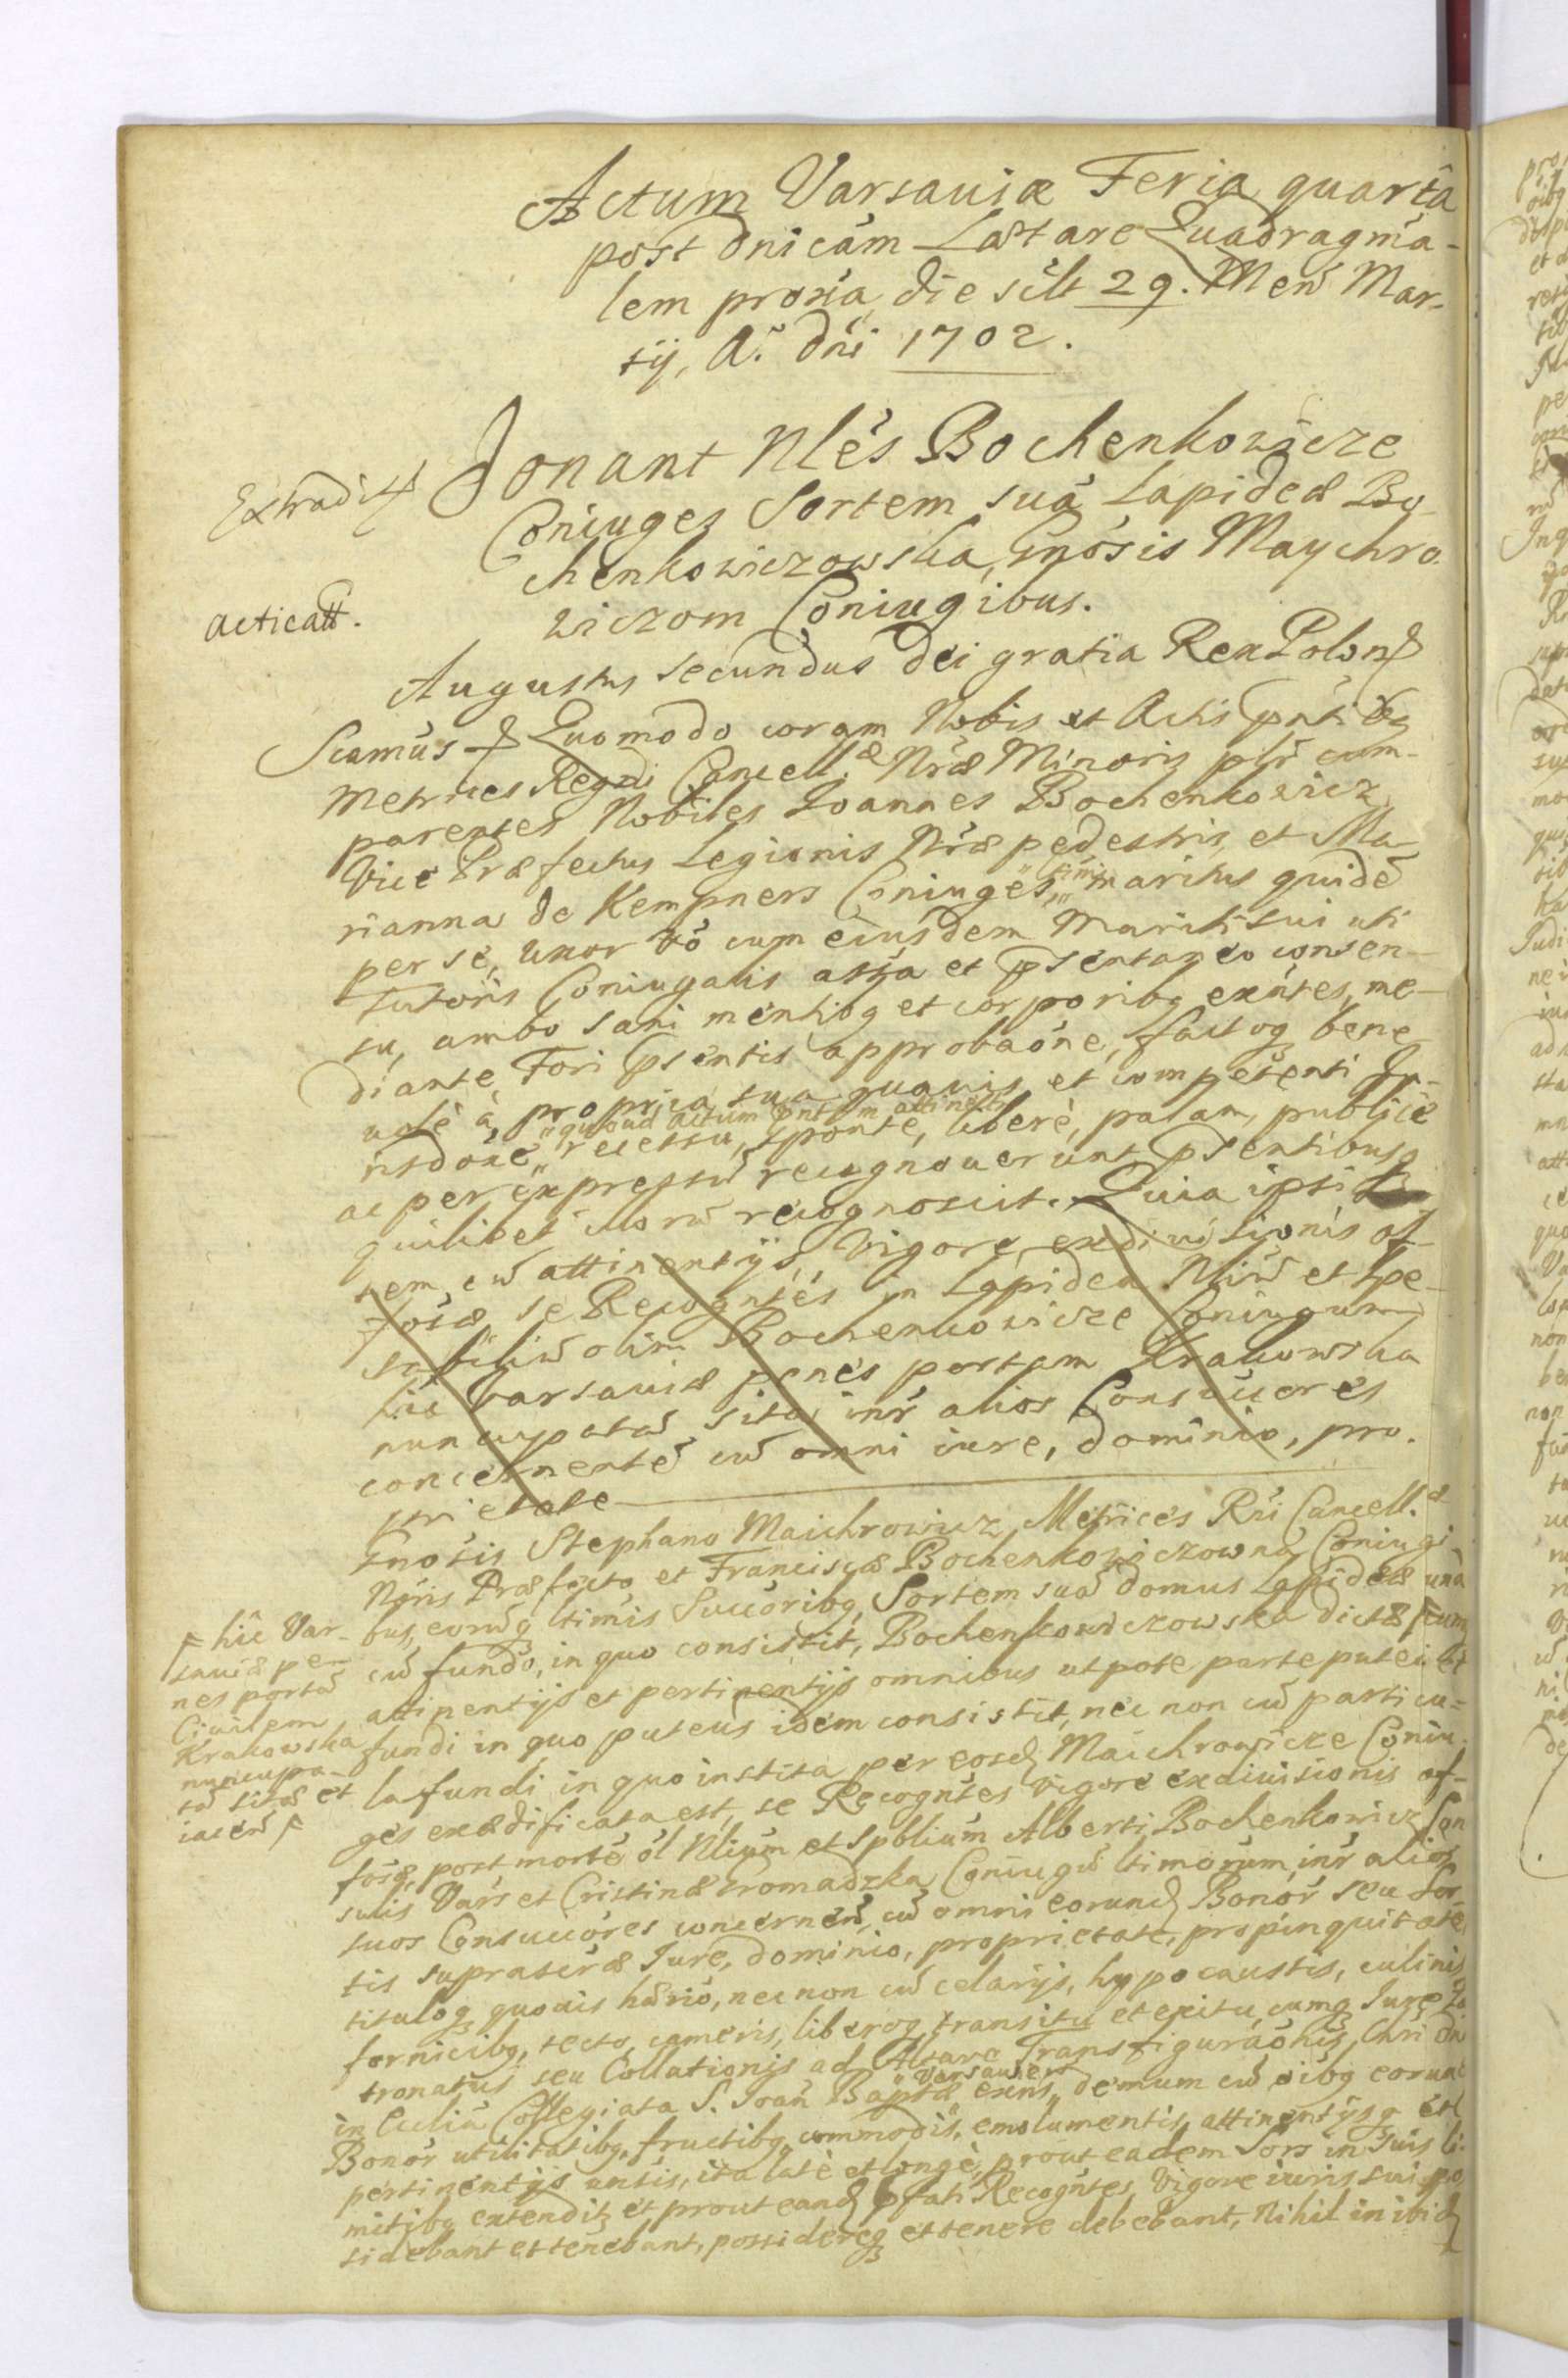 Actum Varsaviæ Feria quarta
post dnicam Lætare Quadragma-
lem proxa, die scilt 29. Men̄ Mar-
tij, A.° dni 1702.
Extradit
Donant Nlēs Bochenkowicze
Coniuges Sortem suā Lapideæ Bo-
chenkowiczowska, Gnosis Maychro-
wiczom Coniugibus.
acticatt.
Augustus secundus dei gratia Rex Polon
Scamus Quomodo coram Nobis et Actis pntibq
Metrices Regni Cancell.æ Nræ Minoris plr com-
parentes Nobiles Ioannes Bochenkowicz,
Vice Præfectus Legionis Nræ pedestris, et Ma-
rianna de Kempners Coniuges, maritus quidē
per se, uxor vō cum eiusdem Mariti sui uti
tutoris Coniugalis assȳa et psentaneo consen-
su, ambo sani mentibq et corporibq exntes, me-
diante Fori psentis approbaōne, factoq bene
uole à propria sua quauis et competenti Iu-
risdōne "quoad Actum pntem attinet" recessu, sponte, liberè, palam, publice
ac per expressū recognouerunt psentibusq
quilibet illorū recognoscit. Quia ipsi
tem, cū attinentijs, vigore exdivisionis of-
fosæ, se Recogntēs in Lapidea Nliū et Spe-
ctabiliū olim Bochenkowicze Coniugum
hic Varsaviæ penes portam Krakowska
nuncupatā, sita, intr alios Consuccores
concernentē cū omni iure, dominio, pro-
prietate
Gnosis Stephano Maichrowicz, Metrices Rni Cancell.æ
Noris Præfecto et Franciscæ Bochenkowiczowna Coniugi-
bus, eorūq ltimis Succoribq, Sortem suā domus Lapideæ unā
cū fundo, in quo consistit, Bochenkowiczowska dictæ F cum
attinentijs et pertinentijs omnibus utpote parte putei et
fundi in quo puteus idem consistit, nec non cū particu-
la fundi in quo instita per eosd Maichrowicze Coniu-
ges exædificata est, se Recogntes vigore exdiuisionis of-
fosæ, post mortē ol Nlium et Spblium Alberti Bochenkowicz Con-
sulis Vars et Cristinæ Gromadzka Coniugū ltimorum, intr alios
suos Consuccores concernen̄, cū omni eorund Bonor̄ seu Sor-
tis suprascræ Iure, dominio, proprietate, propinquitate
tituloq quouis hærio, nec non cū celarijs, hypocaustis, culinis
fornicibq, tecto, cameris, liberoq transitu et exitu, cumq Iure Pa
tronatus seu Collationis ad Altare Transfiguraōnis Chri Dni
in Ecclia Collegiata S. Ioan Baptæ "Varsauien" exens, demum cū oibq eorund
Bonor̄ utilitatibq, fructibq, commodis, emolumentis, attinentijsq et
pertinentijs untis, ita late et longè, prout eadem Sors in suis li-
mitibq extendit et prout eand pfati Recogntes, vigore iuris sui pos
sidebant et tenebant, possidereq et tenere debebant, Nihil in ibid
F hic Var-
sauiæ pe-
nes portā
Ciuilem,
Krakowska
nuncupa-
tā sitæ et
iacen̄ F